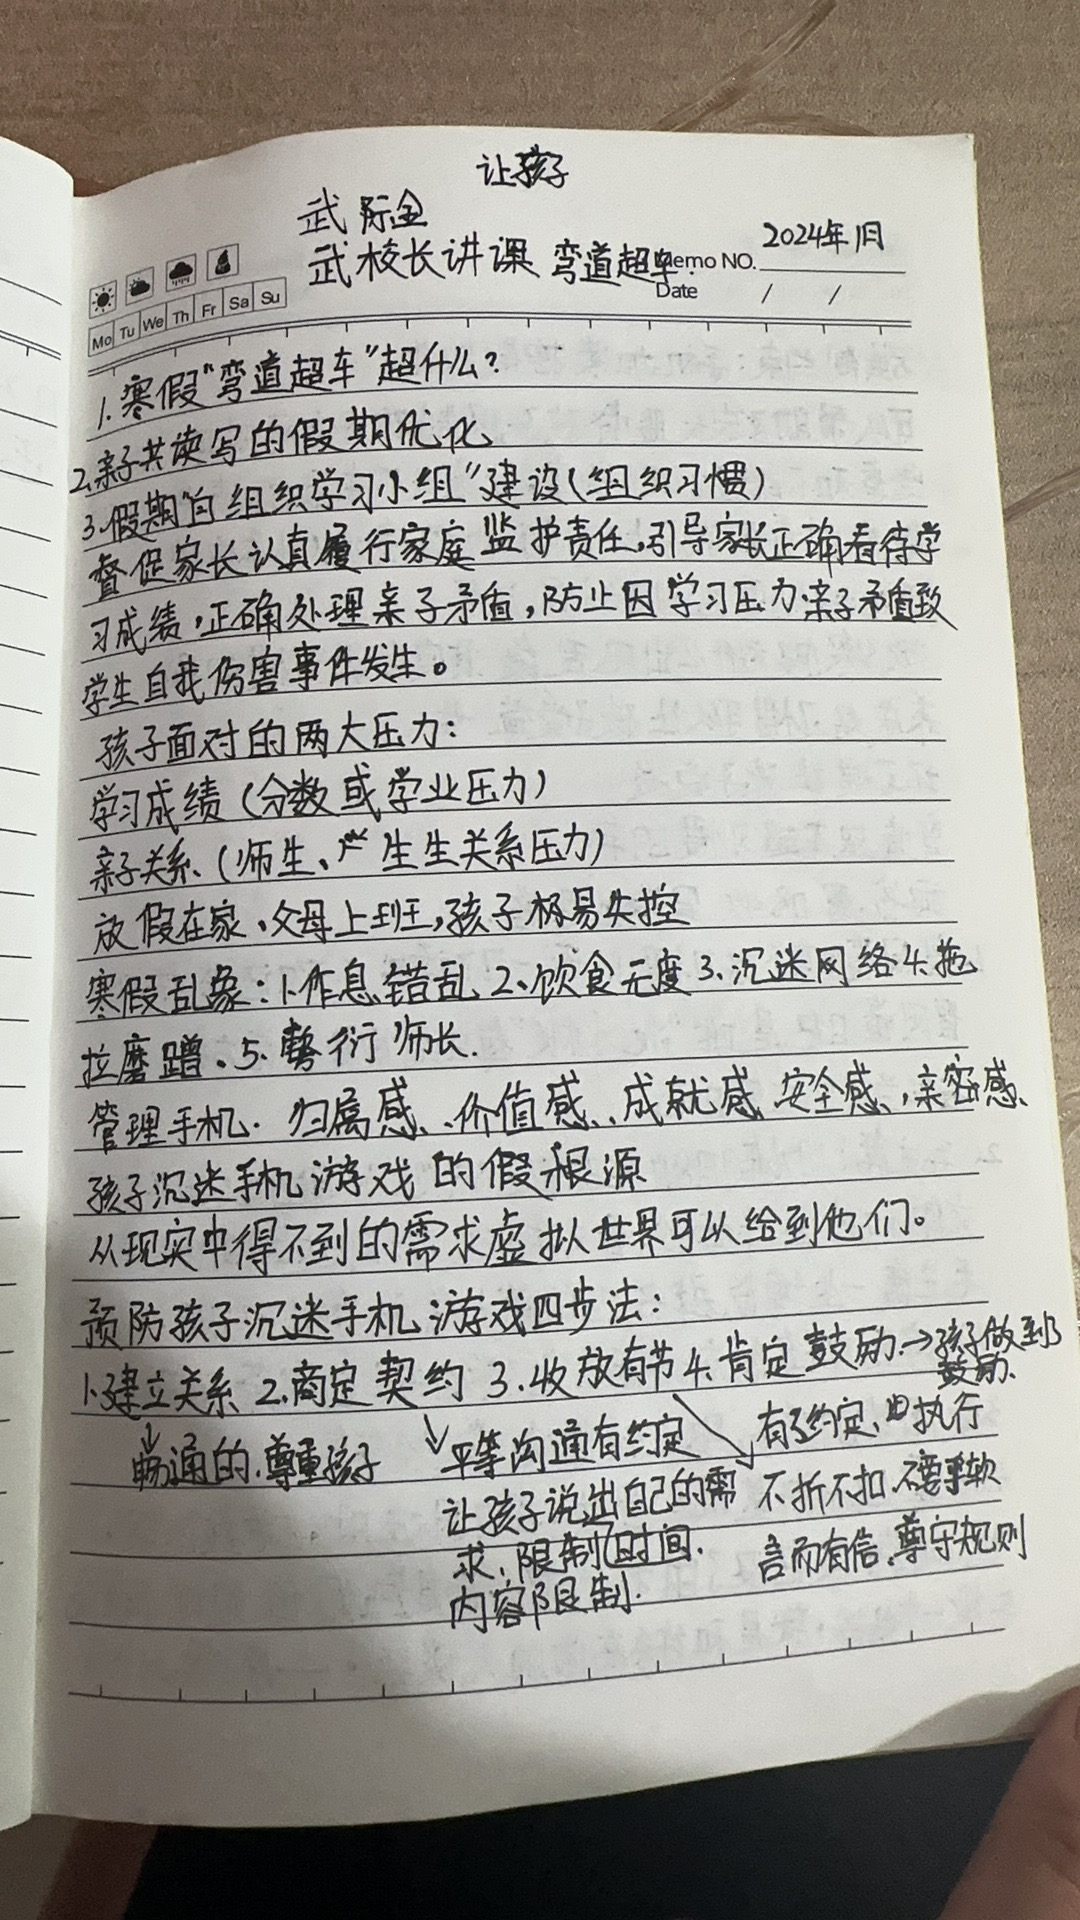 让孩子
武际金
武校长讲课 弯道超车.
2024年1月
Memo NO.
Date / /
Mo Tu We Th Fr Sa Su
1.寒假"弯道超车"超什么?
2.亲子共读写的假期优化
3.假期"自组织学习小组"建设(组织习惯)
督促家长认真履行家庭监护责任,引导家长正确看待学
习成绩,正确处理亲子矛盾,防止因学习压力.亲子矛盾致
学生自我伤害事件发生。
孩子面对的两大压力:
学习成绩(分数或学业压力)
亲子关系、(师生、生生关系压力)
放假在家,父母上班,孩子极易失控
寒假乱象:1.作息错乱 2、饮食无度 3、沉迷网络 4.拖
拉磨蹭、5、敷衍师长.
管理手机. 归属感、价值感、成就感 安全感、,亲密感、
孩子沉迷手机游戏的假根源
从现实中得不到的需求虚拟世界可以给到他们。
预防孩子沉迷手机游戏四步法:
1.建立关系 2.商定契约 3.收放有节 4.肯定鼓励.→孩子做到
鼓励.
↓ 畅通的.尊重孩子
↓ 平等沟通有约定
让孩子说出自己的需
求,限制时间.
内容限制.
有了约定、执行
不折不扣.不要手软
言而有信,遵守规则